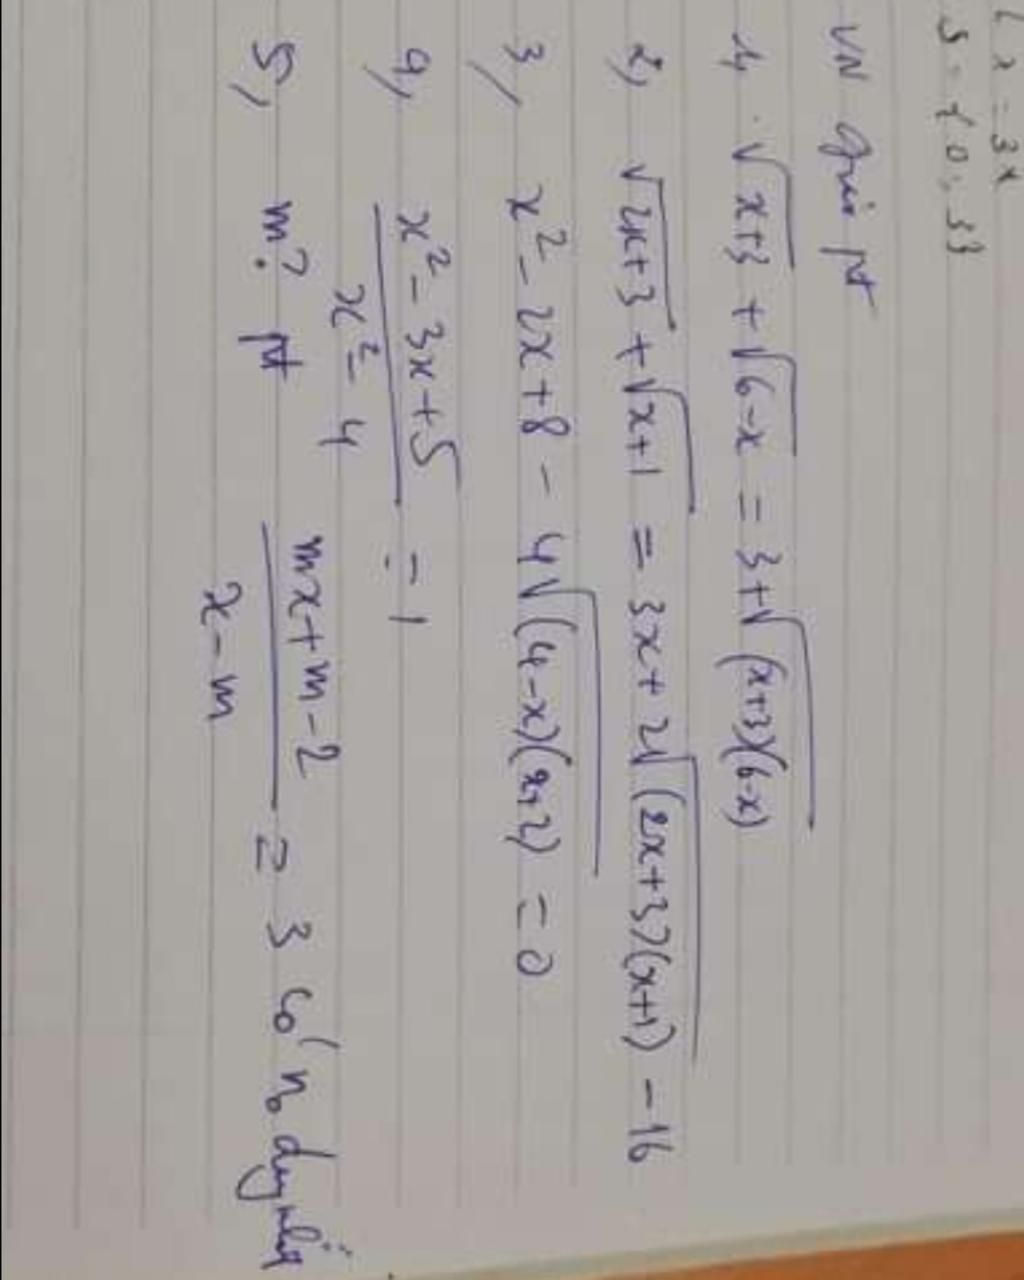 x = 3x
S = {0; 3}
VN giải pt
1, √(x+3) + √(6-x) = 3 + √((x+3)(6-x))
2, √(2x+3) + √(x+1) = 3x + 2√((2x+3)(x+1)) - 16
3, x² - 2x + 8 - 4√((4-x)(x+2)) = 0
4, (x² - 3x + 5)/(x² - 4) = 1
5, m? pt (mx + m - 2)/(x - m) = 3 có no duy nhất